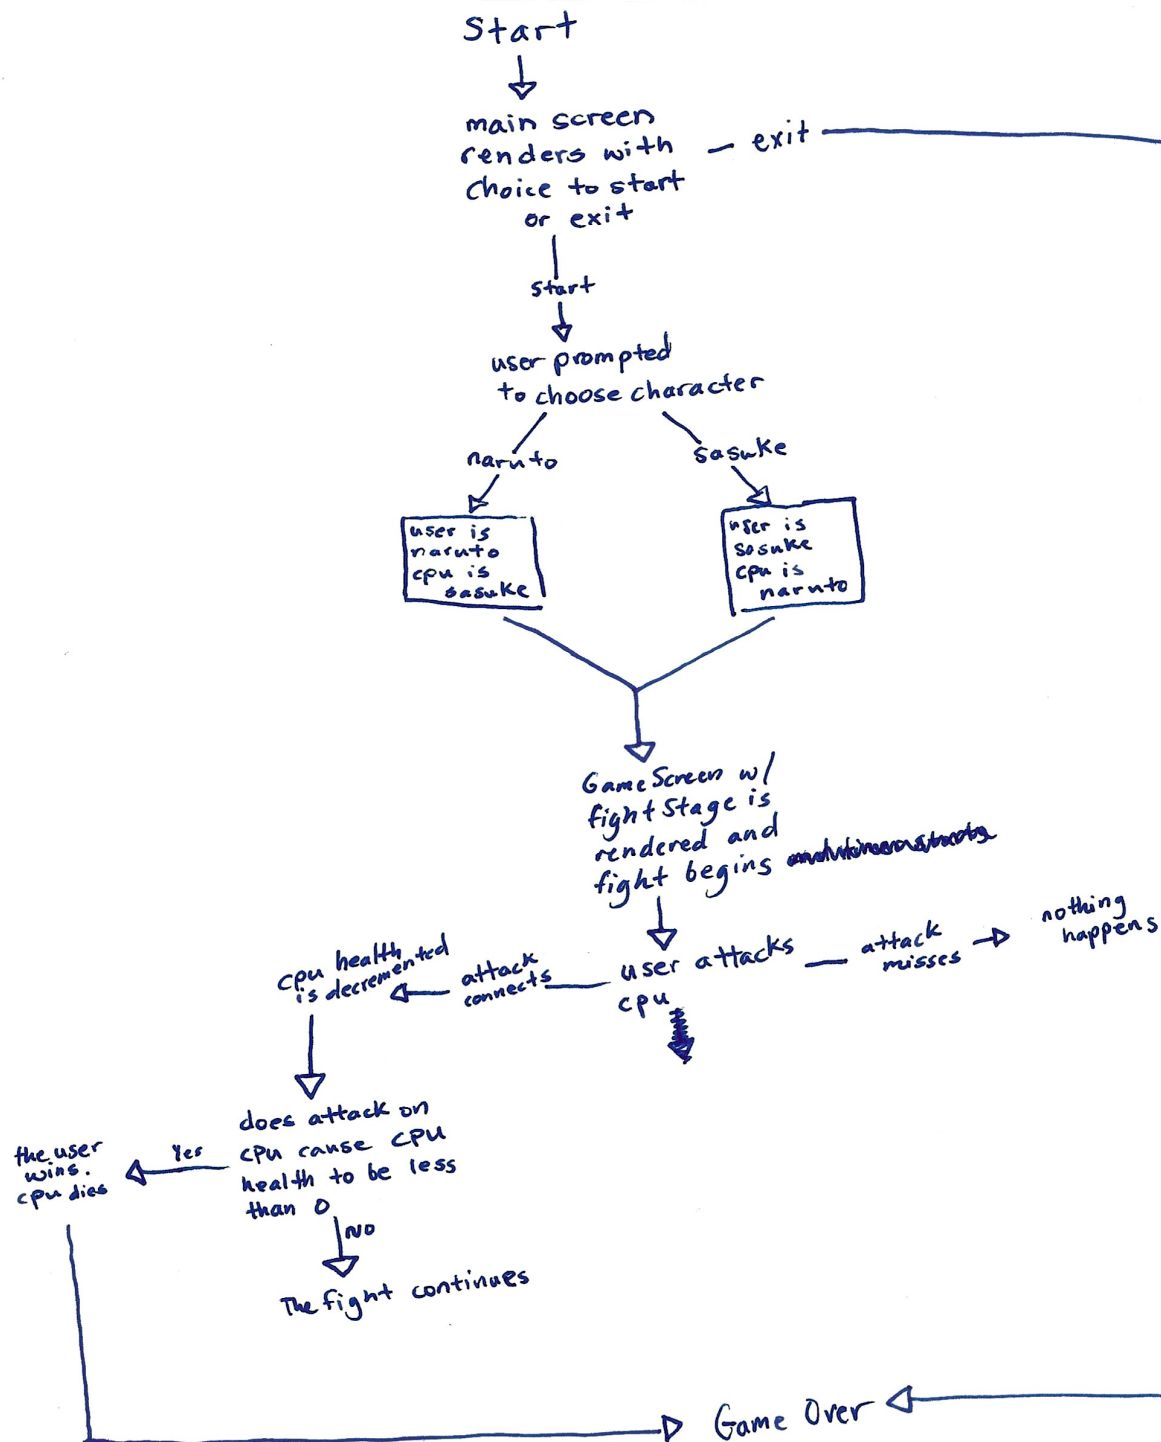 Start
main screen
renders with
choice to start
or exit
- exit
start
user prompted
to choose character
naruto
sasuke
user is
naruto
cpu is
sasuke
user is
sasuke
cpu is
naruto
GameScreen w/
fightStage is
rendered and
fight begins
user attacks
cpu
attack
misses
nothing
happens
attack
connects
cpu health
is decremented
does attack on
cpu cause CPU
health to be less
than 0
Yes
the user
wins.
cpu dies
NO
The fight continues
Game Over